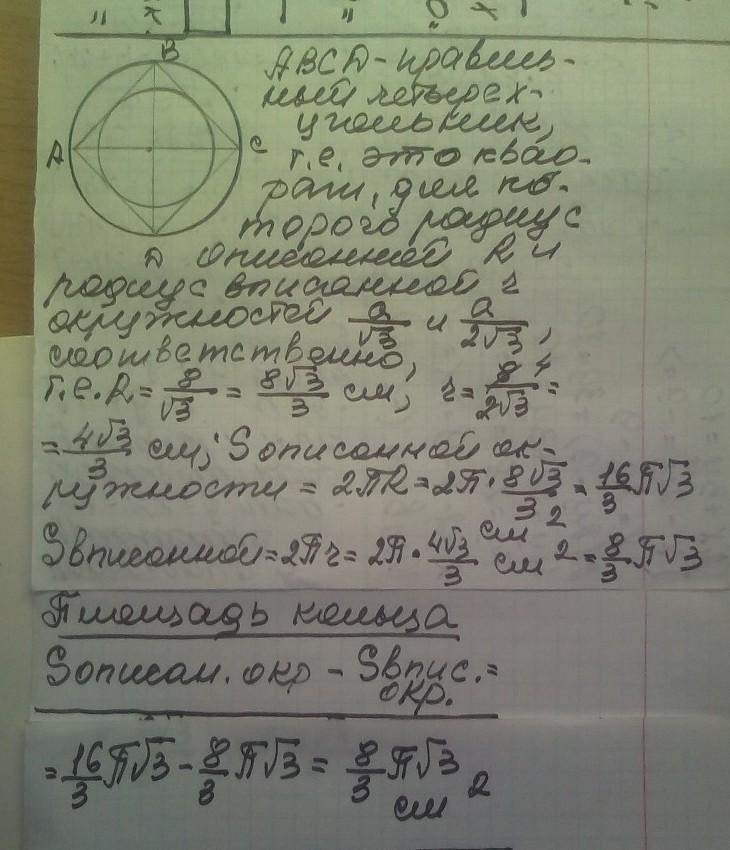 B
A
C
D
ABCD - правиль-
ный четырех-
угольник,
т.е. это квад-
рат, для ко-
торого радиус
описанной R и
радиус вписанной r
окружностей a/√3 и a/2√3,
соответственно,
т.е. R = 8/√3 = 8√3/3 см, r = 8/2√3 =
= 4√3/3 см; Sописанной ок-
ружности = 2πR = 2π · 8√3/3 = 16/3 π√3
см 2
Sвписанной = 2πr = 2π · 4√3/3 см 2 = 8/3 π√3
Площадь кольца
Sописан. окр - Sвпис. =
окр.
= 16/3 π√3 - 8/3 π√3 = 8/3 π√3
см 2